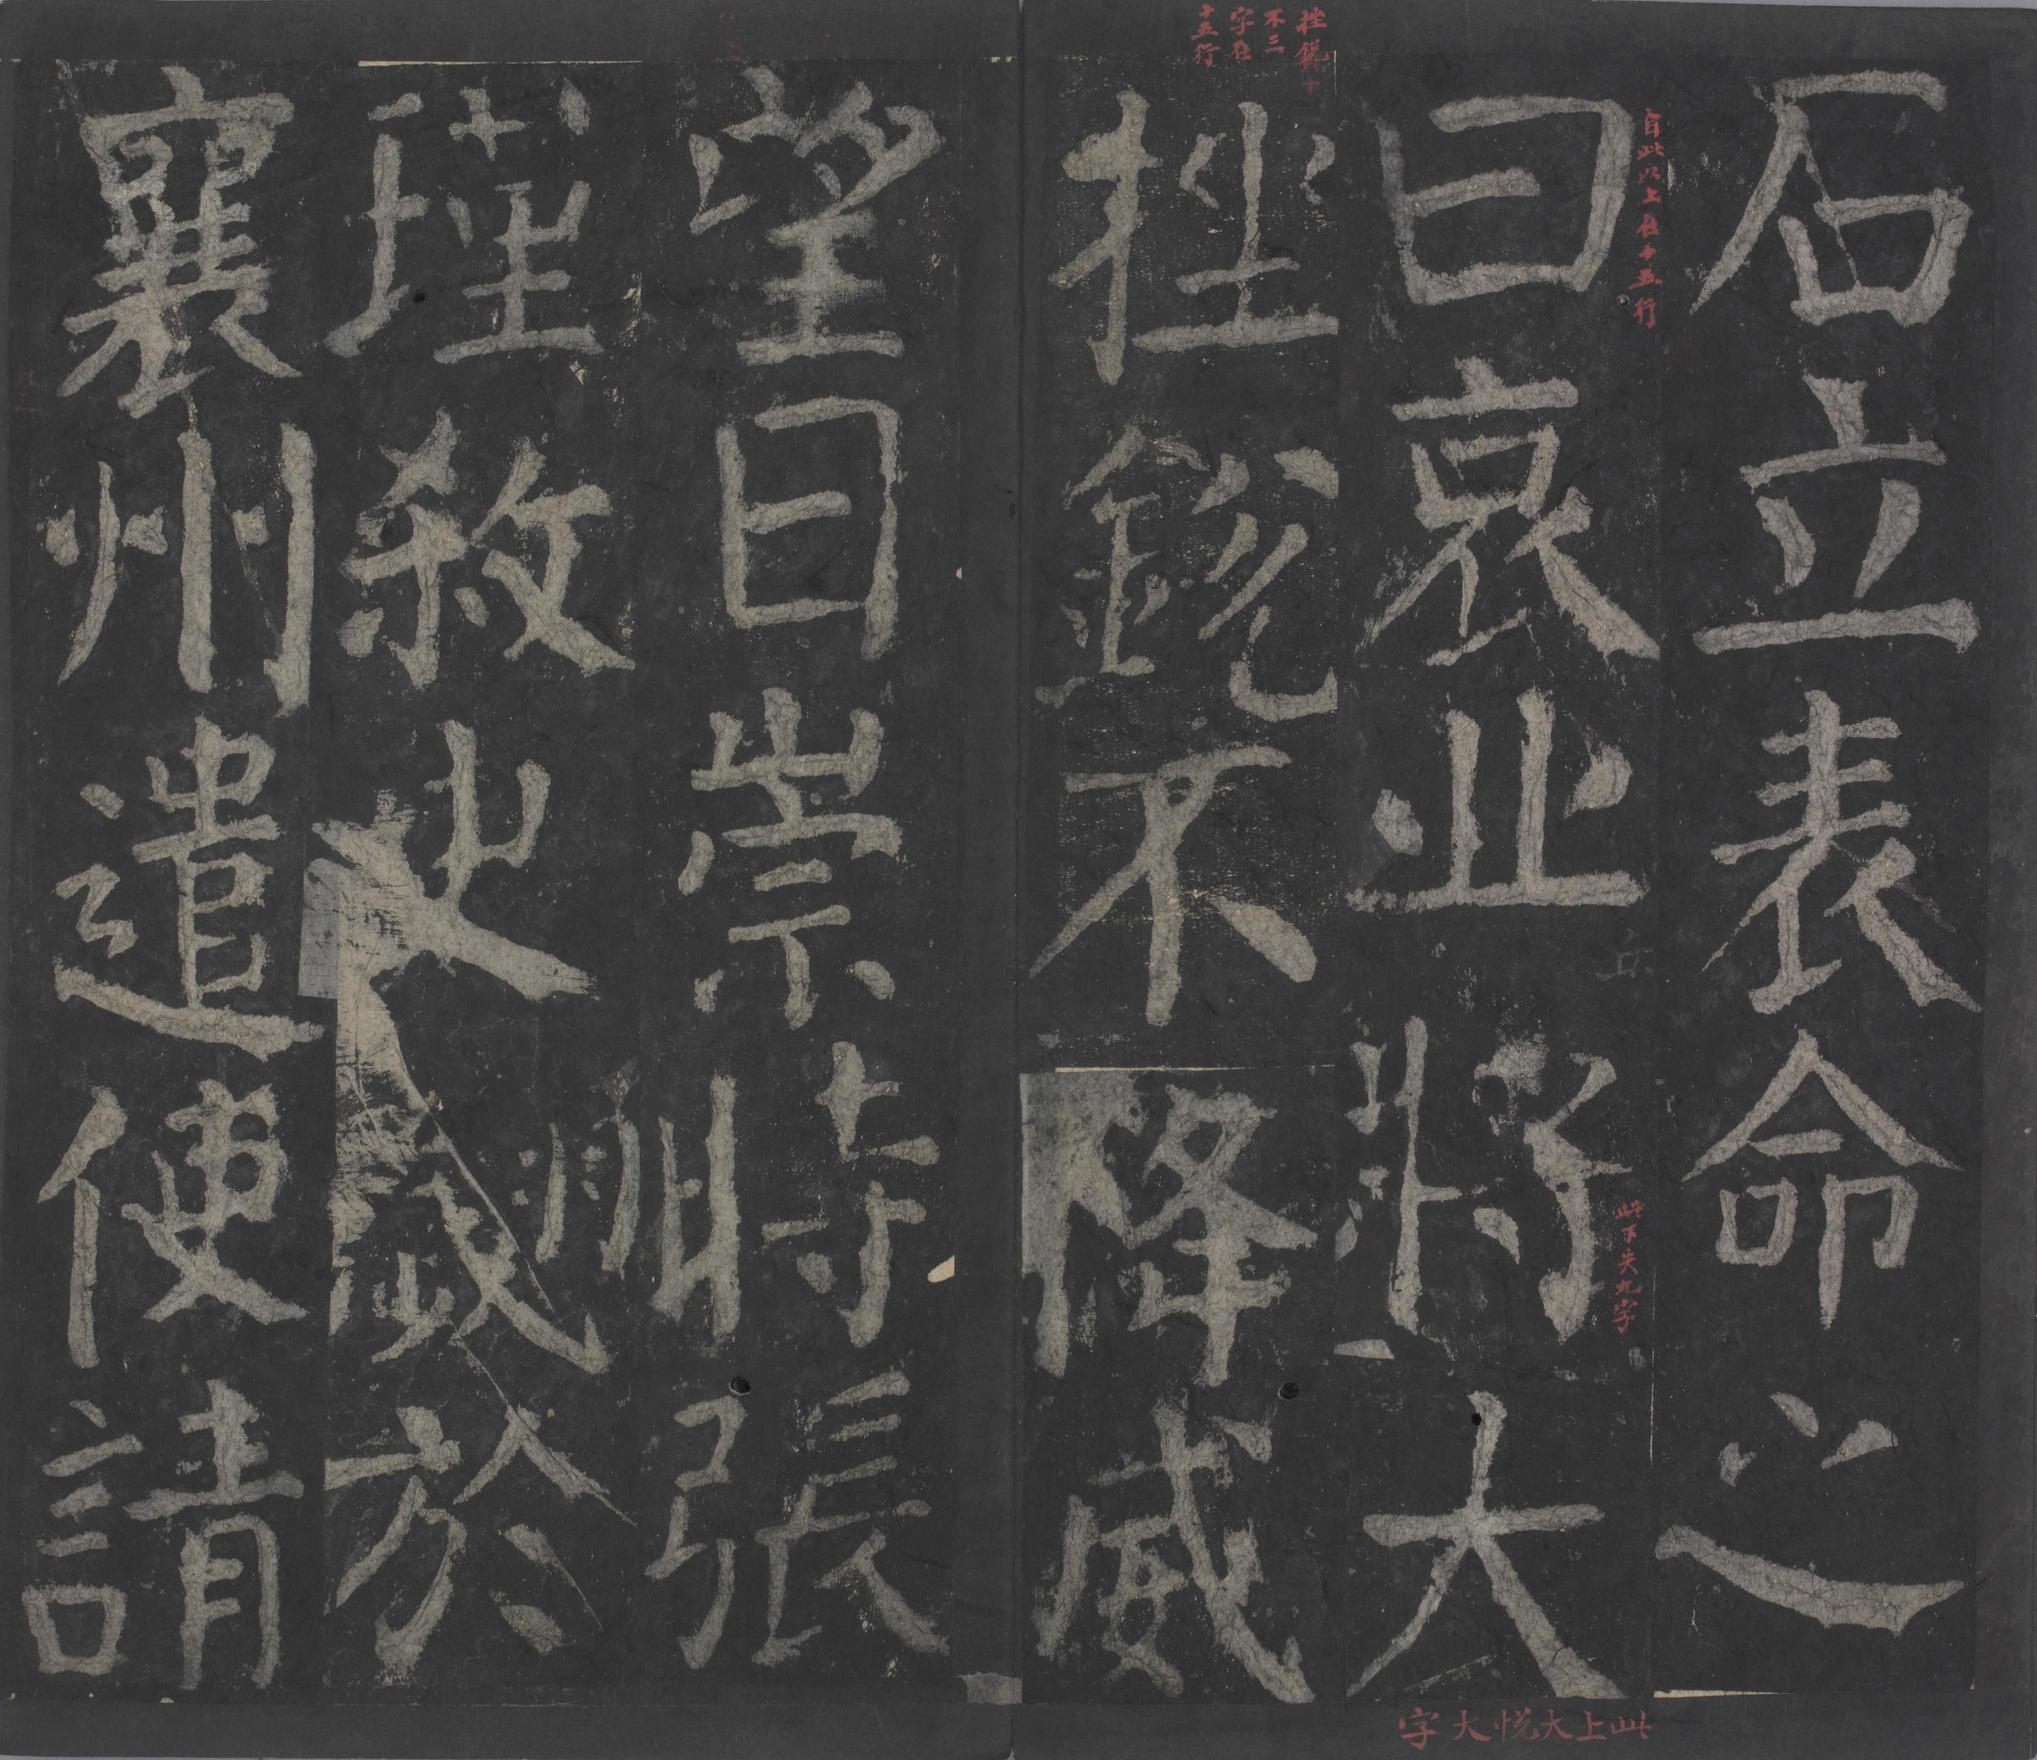 石立表命之
曰哀丘將大
挫銳不降威
望日崇時張
瑾殺史翽於
襄州遣使請
自此以上在十五行
此下失九字
此上大悅大字
挫銳
不三
字在
十五行